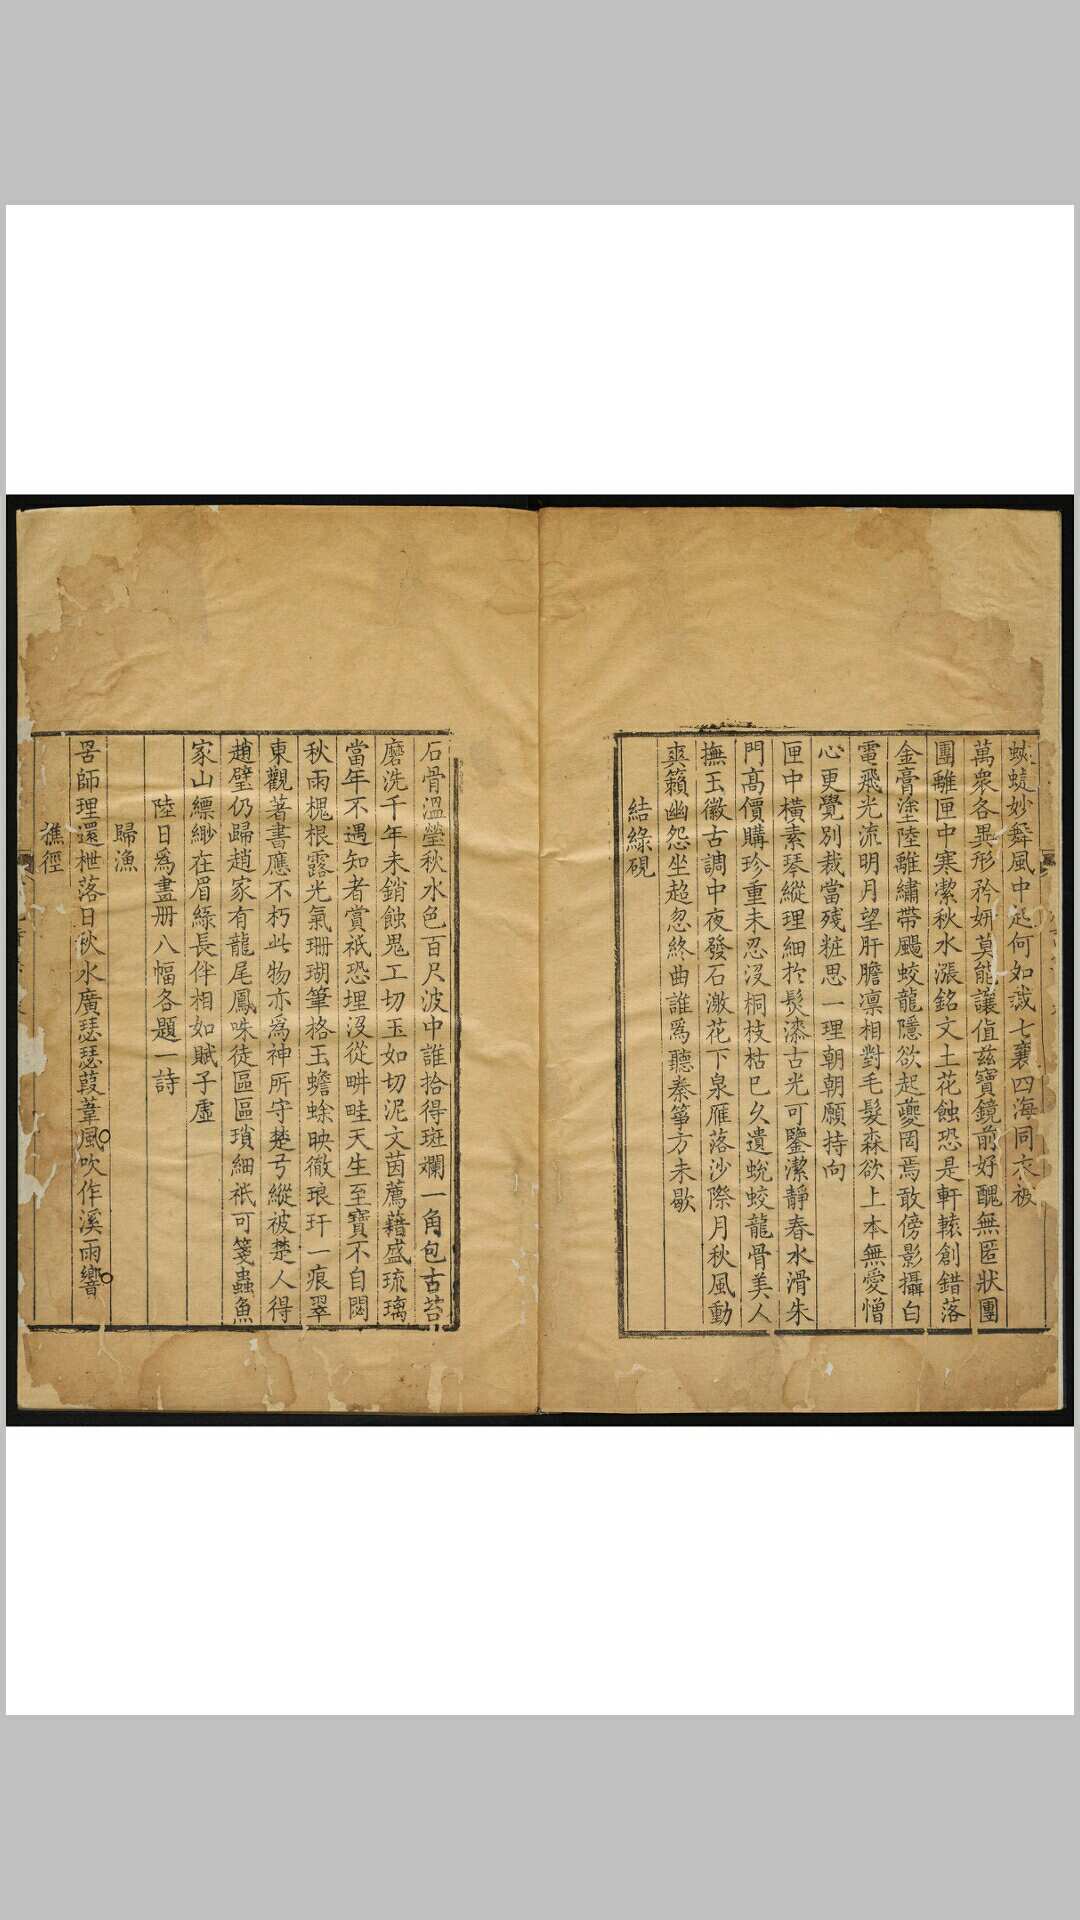 蛺蜨妙舞風中起何如誠七襄四海同衣被
萬衆各異形矜妍莫能讓值兹寶鏡前好醜無匿狀團
團離匣中寒潔秋水漲銘文土花蝕恐是軒轅創錯落
金膏塗陸離繡帶颺蛟龍隱欲起夔罔焉敢傍影攝白
電飛光流明月望肝膽凛相對毛髮森欲上本無愛憎
心更覺別裁當殘粧思一理朝朝願持向
匣中橫素琴縱理細於髮漆古光可鑒潔靜春水滑朱
門高價購珍重未忍沒桐枝枯巳久遺蛻蛟龍骨美人
撫玉徽古調中夜發石激花下泉雁落沙際月秋風動
爽籟幽怨坐超忽終曲誰爲聽秦箏方未歇
結綠硯
石骨溫瑩秋水色百尺波中誰拾得斑斕一角包古苔
磨洗千年未銷蝕鬼工切玉如切泥文茵薦藉盛琉璃
當年不遇知者賞祇恐埋沒從畊畦天生至寶不自閟
秋雨槐根露光氣珊瑚筆格玉蟾蜍映徹琅玕一痕翠
東觀著書應不朽此物亦爲神所守楚弓縱被楚人得
趙璧仍歸趙家有龍尾鳳咮徒區區瑣細祇可箋蟲魚
家山縹緲在眉綠長伴相如賦子虛
陸日爲畫册八幅各題一詩
歸漁
罟師理還枻落日秋水廣瑟瑟葭葦風吹作溪雨響
樵徑